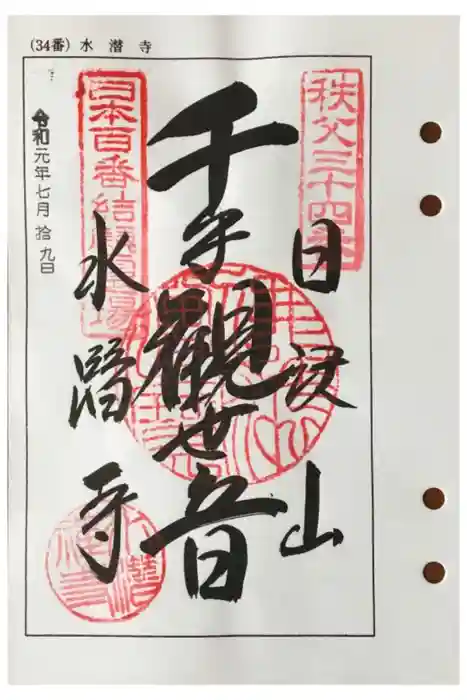 (34番) 水潜寺
秩父三十四番
日沢山
千手觀世音
日本百番結願道場
水潛寺
令和元年七月拾九日